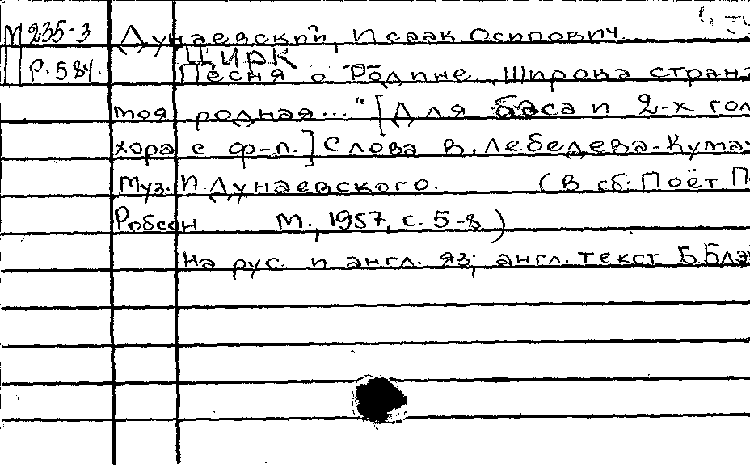 М 235-3 Дунаевский, Исаак Осипович.
ЦИРК
Р. 584. Песня о Родине "Широка страна
моя родная..." [Для баса и 2-х гол
хора с ф-п.] Слова В. Лебедева-Кума
Муз. И. Дунаевского. (В сб: Поёт П
Робсон М., 1957, с. 5-8)
На рус. и англ. яз; англ. текст Б. Бла